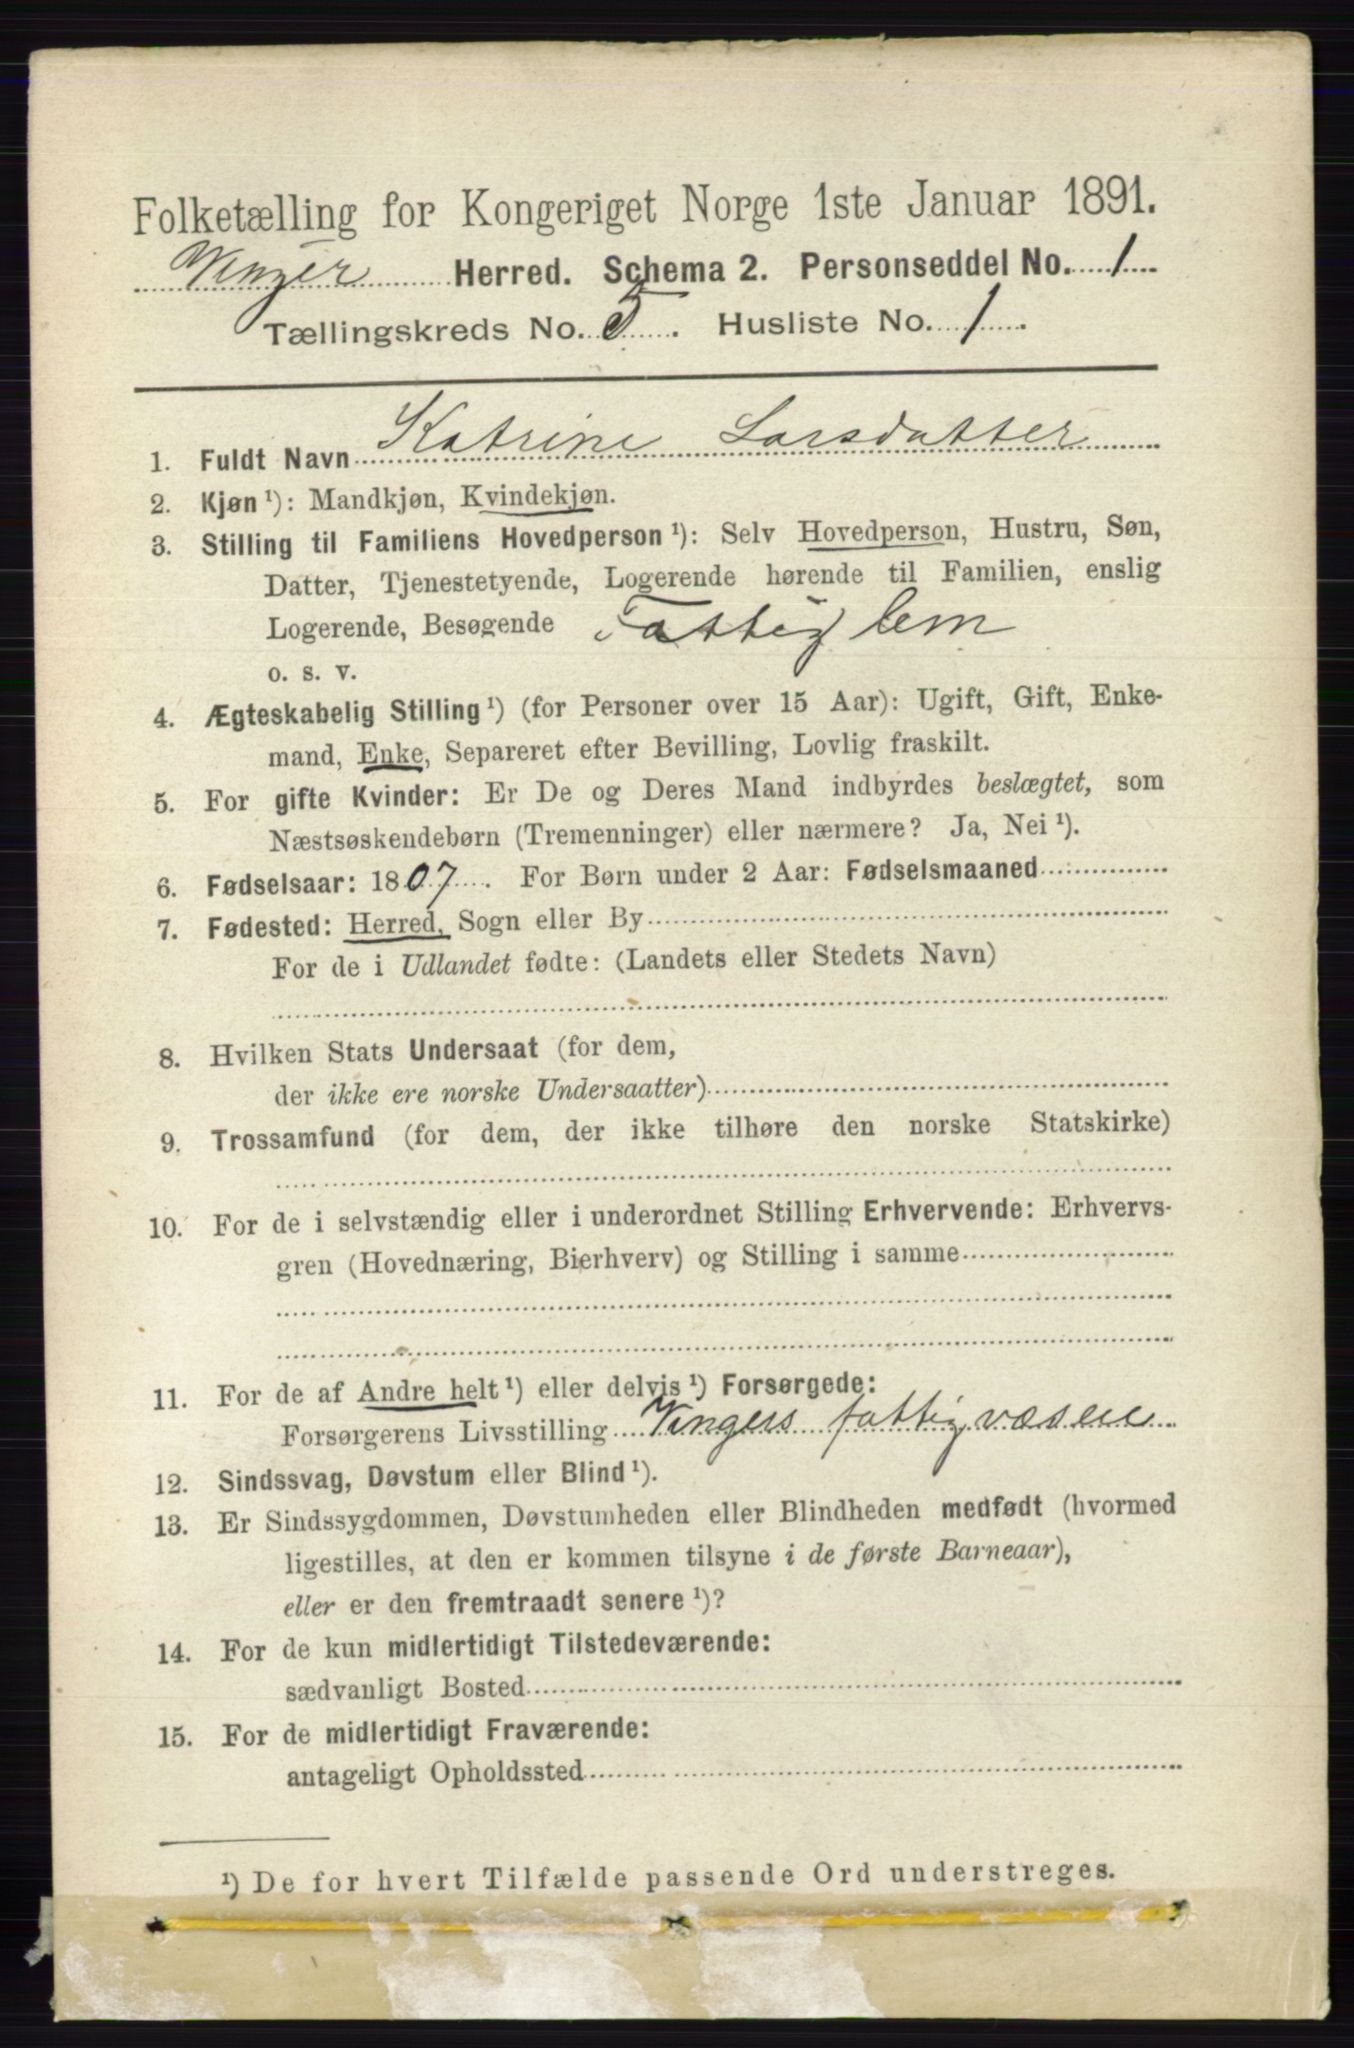 Folketælling for Kongeriget Norge 1ste Januar 1891.
Vinger Herred. Schema 2. Personseddel No. 1
Tællingskreds No. 5. Husliste No. 1.
1. Fuldt Navn Katrine Larsdatter
2. Kjøn ¹): Mandkjøn, Kvindekjøn.
3. Stilling til Familiens Hovedperson ¹): Selv Hovedperson, Hustru, Søn,
Datter, Tjenestetyende, Logerende hørende til Familien, enslig
Logerende, Besøgende Fattig lem
o. s. v.
4. Ægteskabelig Stilling ¹) (for Personer over 15 Aar): Ugift, Gift, Enke-
mand, Enke, Separeret efter Bevilling, Lovlig fraskilt.
5. For gifte Kvinder: Er De og Deres Mand indbyrdes beslægtet, som
Næstsøskendebørn (Tremenninger) eller nærmere? Ja, Nei ¹).
6. Fødselsaar: 1807. For Børn under 2 Aar: Fødselsmaaned
7. Fødested: Herred, Sogn eller By
For de i Udlandet fødte: (Landets eller Stedets Navn)
8. Hvilken Stats Undersaat (for dem,
der ikke ere norske Undersaatter)
9. Trossamfund (for dem, der ikke tilhøre den norske Statskirke)
10. For de i selvstændig eller i underordnet Stilling Erhvervende: Erhvervs-
gren (Hovednæring, Bierhverv) og Stilling i samme
11. For de af Andre helt ¹) eller delvis ¹) Forsørgede:
Forsørgerens Livsstilling Vingers fattigvæsen
12. Sindssvag, Døvstum eller Blind ¹).
13. Er Sindssygdommen, Døvstumheden eller Blindheden medfødt (hvormed
ligestilles, at den er kommen tilsyne i de første Barneaar),
eller er den fremtraadt senere ¹)?
14. For de kun midlertidigt Tilstedeværende:
sædvanligt Bosted
15. For de midlertidigt Fraværende:
antageligt Opholdssted
¹) De for hvert Tilfælde passende Ord understreges.